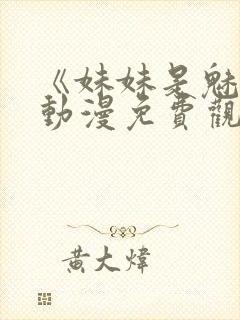 《妹妹是魅
動漫免費觀
黃大煒